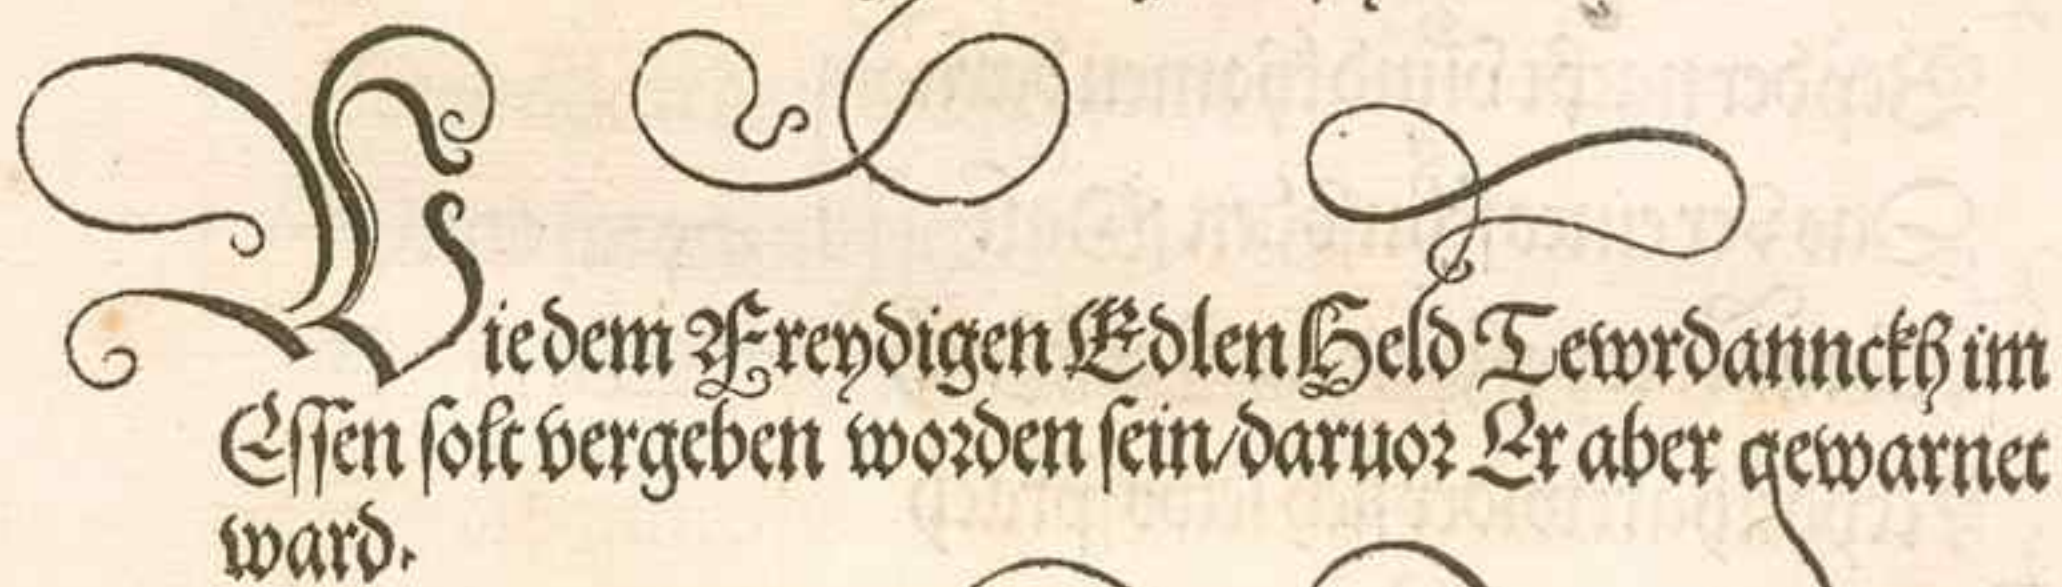 Wie dem Freydigen Edlen Held Tewrdannckh im
Essen solt vergeben worden sein/daruor Er aber gewarnet
ward.